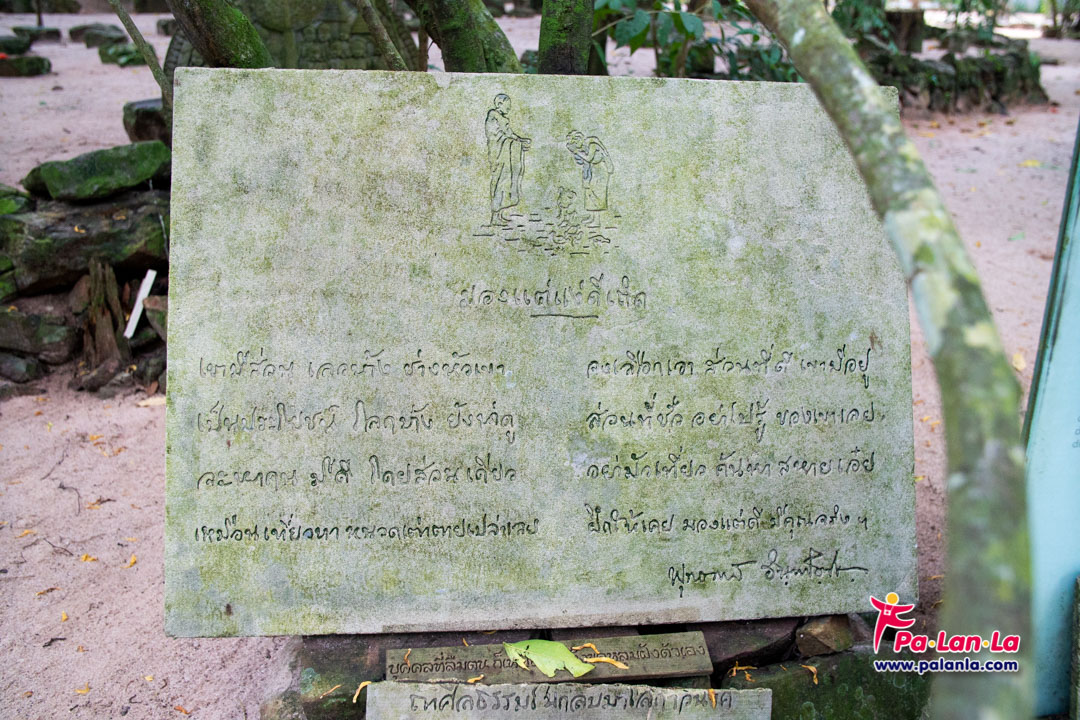 มองแต่แง่ดีเถิด
เขามีส่วน เลวบ้าง ช่างหัวเขา
จงเลือกเอา ส่วนที่ดี เขามีอยู่
เป็นประโยชน์ โลกบ้าง ยังน่าดู
ส่วนที่ชั่ว อย่าไปรู้ ของเขาเลย
จะหาคน มีดี โดยส่วนเดียว
อย่ามัวเที่ยว ค้นหา สหายเอ๋ย
เหมือนเที่ยวหา หนวดเต่าตายเปล่าเลย
ฝึกให้เคย มองแต่ดี มีคุณจริง ๆ
พุทธทาส อินทปัญโญ
บุคคลที่ลืมตน ก็เห
หลุมฝังตัวเอง
Pa·Lan·La
www.palanla.com